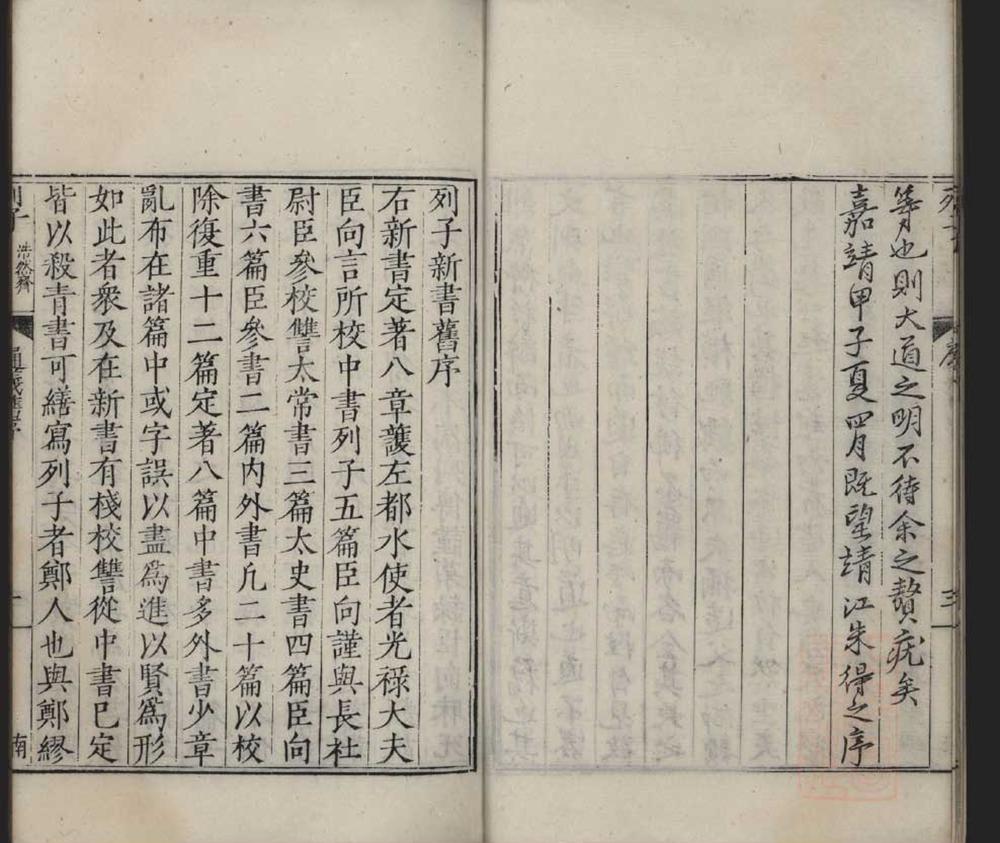 也則大道之明不待余之贅疣矣
嘉靖甲子夏四月既望靖江朱得之序
列子新書舊序
右新書定著八章護左都水使者光祿大夫
臣向言所校中書列子五篇臣向謹與長社
尉臣參校讐太常書三篇太史書四篇臣向
書六篇臣參書二篇內外書凡二十篇以校
除復重十二篇定著八篇中書多外書少章
亂布在諸篇中或字誤以盡為進以賢為形
如此者衆及在新書有棧校讐從中書已定
皆以殺青書可繕寫列子者鄭人也與鄭繆
列子 浩然齋 通義舊序 一 南